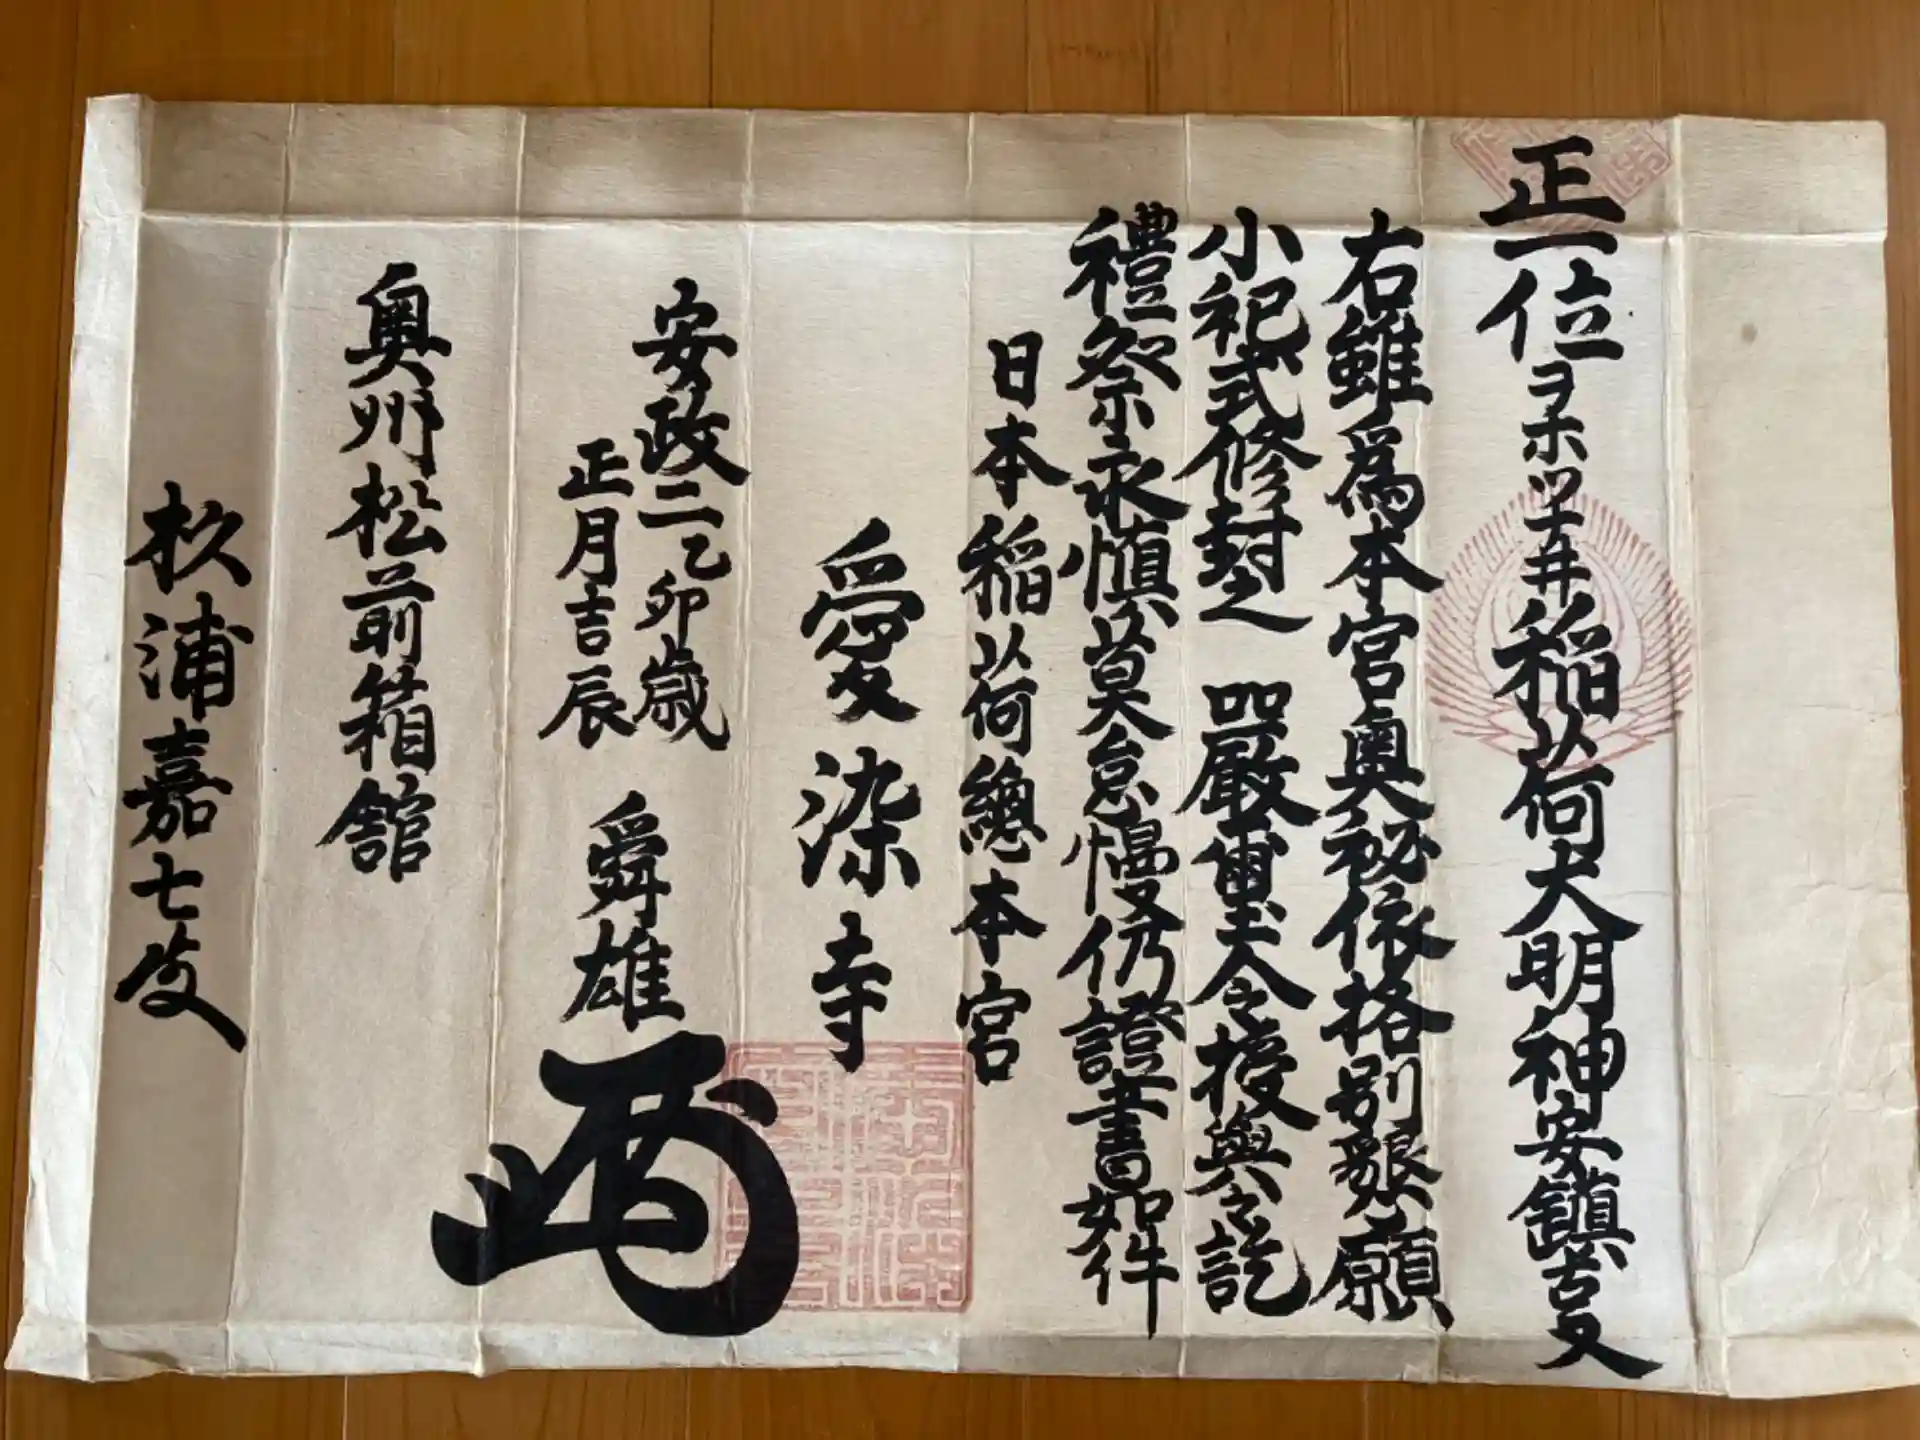 正一位ヲホツナ井稲荷大明神安鎮之叓
右雖為本宮奥秘依格別懇願
小祀式修封之 嚴重令授與令訖
禮祭永慎莫怠慢仍證書如件
日本稲荷總本宮
愛染寺
安政二乙卯歳
正月吉辰
舜雄
奥州松前箱舘
杦浦嘉七殳